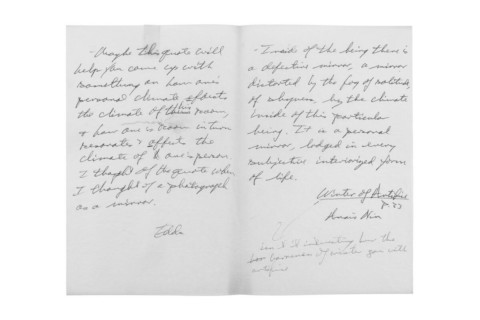 - Maybe this quote will
help you come up with
something on how one's
personal climate affects
the climate of this room,
& how one's room in turn
resonates & affects the
climate of one's person.
I thought of the quote when
I thought of a photograph
as a mirror.
Edda
- Inside of the being there is
a defective mirror, a mirror
distorted by the fog of solitude,
of shyness, by the climate
inside of this particular
being. It is a personal
mirror, lodged in every
subjective interiorized form
of life.
Winter of Artifice
Anais Nin
isn't it interesting how the
of winter you will
artifice